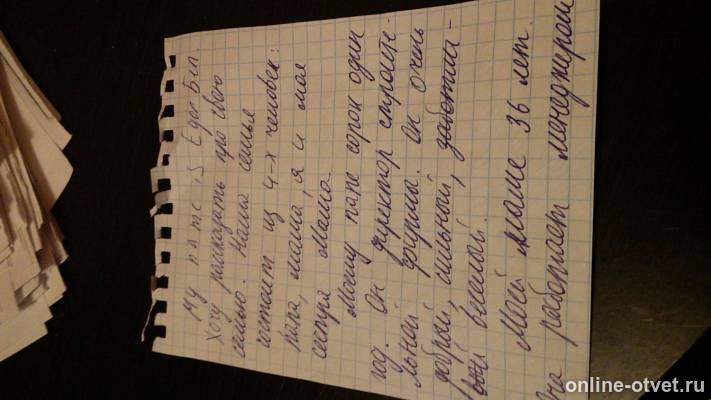 My name is Egor Бел.
Хочу рассказать про свою
семью. Наша семья
состоит из 4-х человек:
папа, мама, я и моя
сестра Маша.
Моему папе сорок один
год. Он директор строите-
льной фирмы. Он очень
добрый, сильный, заботли-
вый весёлый.
Моей маме 36 лет.
Она работает менеджером
online-otvet.ru